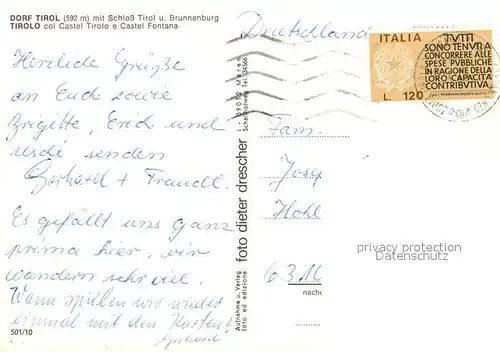 DORF TIROL (592 m) mit Schloß Tirol u. Brunnenburg
TIROLO col Castel Tirolo e Castel Fontana
Herzliche Grüße
an Euch sowie
Brigitte, Erich und
senden
Gerhard + Traudl.
Es gefällt uns ganz
prima hier, wir
wandern sehr viel.
Wann spielen wir wieder
einmal mit den Karten?
Gerhard
501/10
Aufnahme u. Verlag
foto ed edizione
foto dieter drescher
I - 39012 Meran
Deutschland
ITALIA
L. 120
TUTTI
SONO TENUTI A
CONCORRERE ALLE
SPESE PUBBLICHE
IN RAGIONE DELLA
LORO CAPACITÀ
CONTRIBUTIVA
Fam.
63
privacy protection
Datenschutz